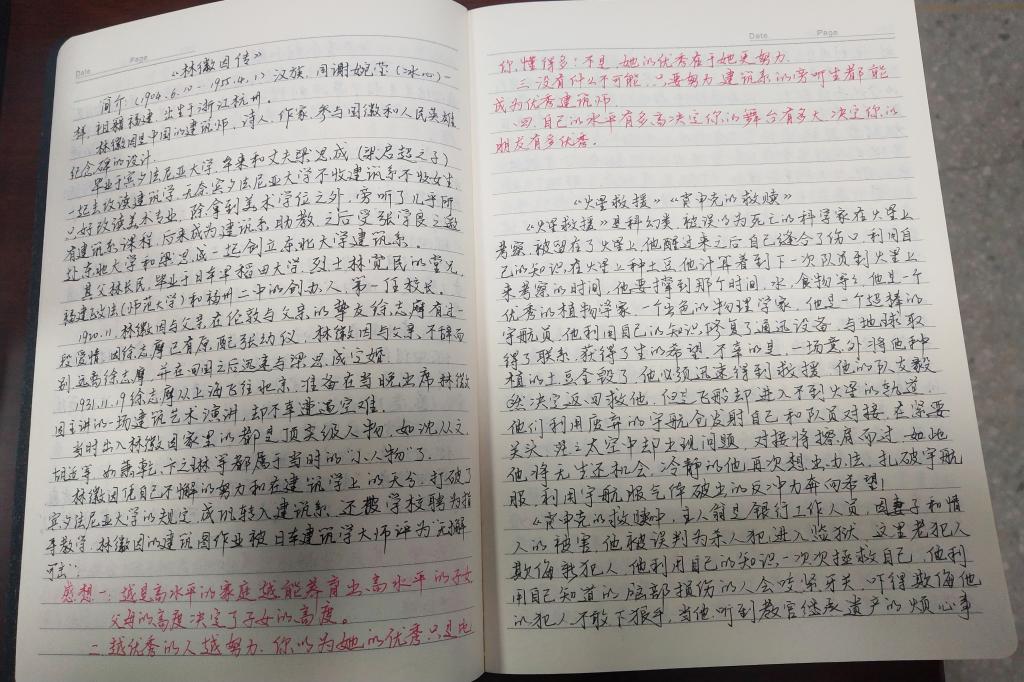 Date Page
《林徽因传》
简介:(1904.6.10-1955.4.1) 汉族，同谢婉莹(冰心)一
样，祖籍福建，出生于浙江杭州。
林徽因是中国的建筑师，诗人，作家，参与国徽和人民英雄
纪念碑的设计.
毕业于宾夕法尼亚大学，年来和丈夫梁思成(梁启超之子)
一起去攻读建筑学，无奈宾夕法尼亚大学不收建筑系不收女生，
只好改读美术专业，除拿到美术学位之外，旁听了几乎所
有建筑系课程，后来成为建筑系助教，之后受张学良之邀
赴东北大学和梁思成一起创立东北大学建筑系。
其父林长民，毕业于日本早稻田大学，烈士林觉民的堂兄，
福建政法(师范大学)和福州二中的创办人，第一任校长。
1920.11,林徽因与父亲在伦敦与父亲的挚友徐志摩有过一
段爱情，因徐志摩已有原配张幼仪，林徽因与父亲，不辞而
别，远离徐志摩，并在回国之后迅速与梁思成定婚。
1931.11.19徐志摩从上海飞往北京，准备在当晚出席林徽
因主讲的一场建筑艺术演讲，却不幸遭遇空难。
当时出入林徽因家里的都是顶尖级人物，如沈从文，
胡适等，如萧乾、卞之琳等都属于当时的"小人物"了。
林徽因凭自己不懈的努力和在建筑学上的天分，打破了
宾夕法尼亚大学的规定，成功转入建筑系，还被学校聘为指
导教学，林徽因的建筑图作业被日本建筑学大师评为"无懈
可击";
感想一：越是高水平的家庭越能养育出高水平的子女
父母的高度决定了子女的高度。
二、越优秀的人越努力，你以为她的优秀只是比
Date Page
你懂得多；不是，她的优秀在于她更努力.
三、没有什么不可能，只要努力，建筑系的旁听生都能
成为优秀建筑师.
四、自己的水平有多高决定你的舞台有多大，决定你的
朋友有多优秀。
《火星救援》《肖申克的救赎》
《火星救援》是科幻类，被误以为死亡的科学家在火星上
考察，被留在了火星上，他醒过来之后自己缝合了伤口，利用自
己的知识，在火星上种土豆，他计算着到下一次队员到火星上
来考察的时间，他要撑到那个时间，水，食物等；他是一个
优秀的植物学家，一个出色的物理学家，他是一个超棒的
宇航员，他利用自己的知识，修复了通迅设备，与地球取
得了联系，获得了生的希望，不幸的是，一场意外将他种
植的土豆全毁了，他必须迅速得到救援，他的队友毅
然决定返回救他，但是飞船却进入不到火星的轨道，
他们利用废弃的宇航仓发射自己和队员对接，在紧要
关头，太空中却出现问题，对接将擦肩而过，如此
他将无生还机会，冷静的他再次想出办法，扎破宇航
服，利用宇航服气体破出的反冲力奔向希望！
《肖申克的救赎中，主人翁是银行工作人员，因妻子和情
人的被害，他被误判为杀人犯，进入监狱，这里老犯人
欺侮新犯人，他利用自己的知识一次次拯救自己，他利
用自己知道的脑部损伤的人会咬紧牙关，吓得欺侮他
的犯人不敢下狠手，当他听到教官继承遗产的烦心事